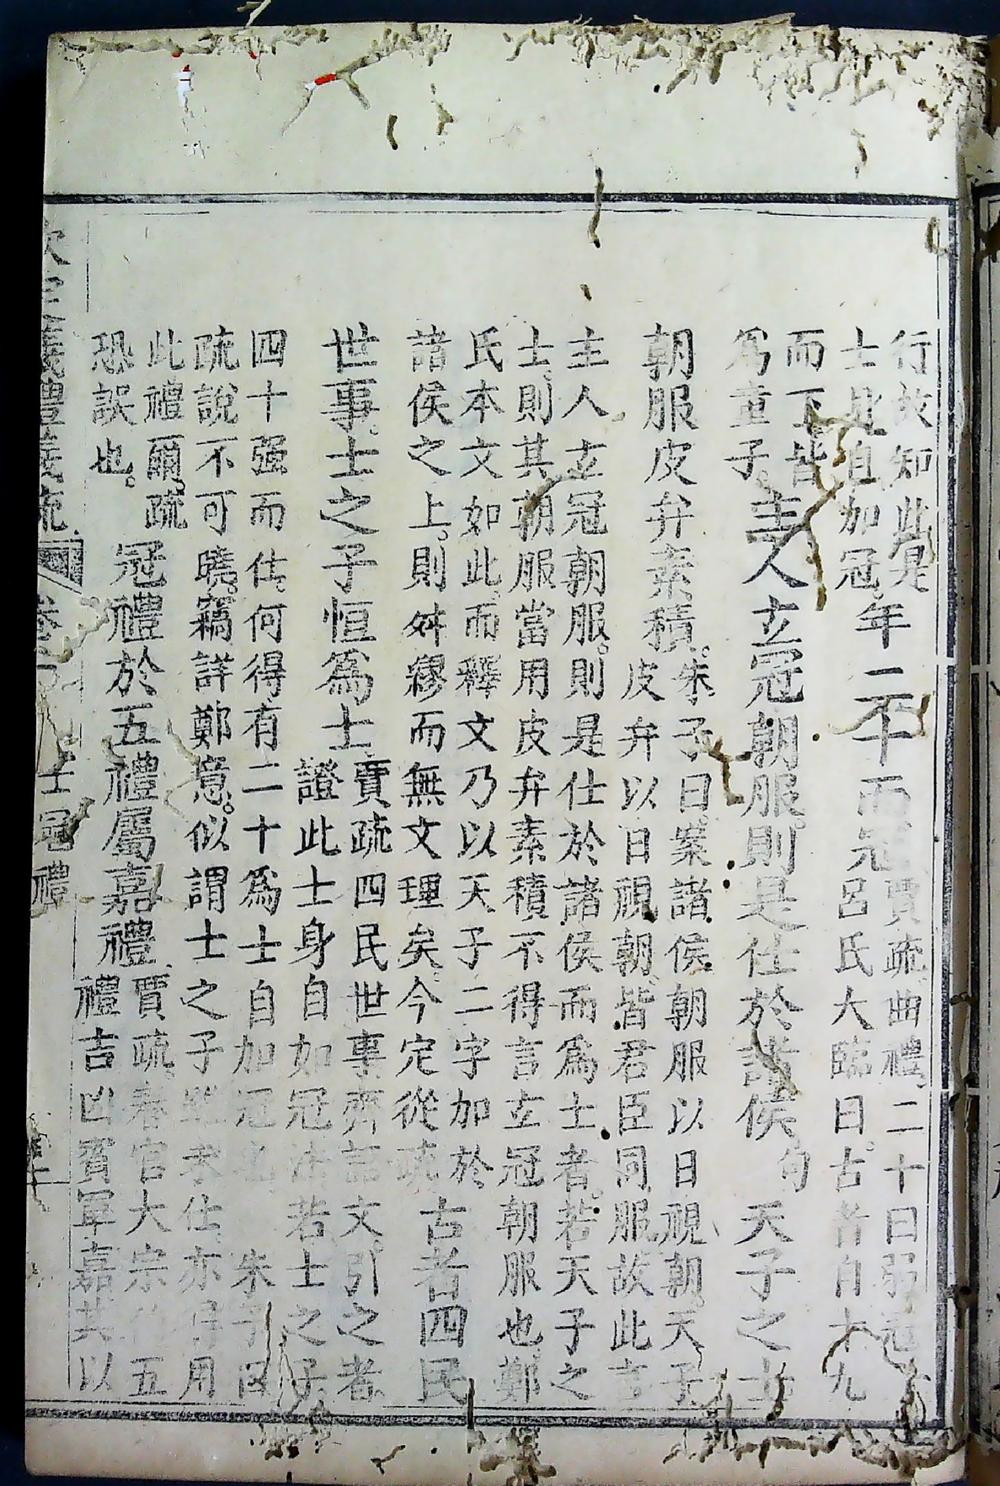 行故知此是
士身自加冠。年二十而冠賈疏曲禮。二十曰弱冠
而下皆呂氏大臨曰。古者自十九
爲童子。主人玄冠朝服則是仕於諸侯句天子之士
朝服皮弁素積。朱子曰。案諸侯朝服以日視朝。天子
皮弁以日視朝。皆君臣同服故此言
主人玄冠朝服。則是仕於諸侯而爲士者。若天子之
士則其朝服當用皮弁素積不得言玄冠朝服也鄭
氏本文如此。而釋文乃以天子二字加於
諸侯之上。則舛繆而無文理矣。今定從疏古者四民
世事。士之子恒爲士賈疏四民世事齊語文引之者
證此士身自加冠法若士之子
四十强而仕。何得有二十爲士自加冠也朱子曰
疏說不可曉。竊詳鄭意。似謂士之子雖未仕亦得用
此禮爾。疏
恐誤也。冠禮於五禮屬嘉禮賈疏。春官大宗伯五
禮吉凶賓軍嘉其以
欽定義禮義疏 卷 士冠禮